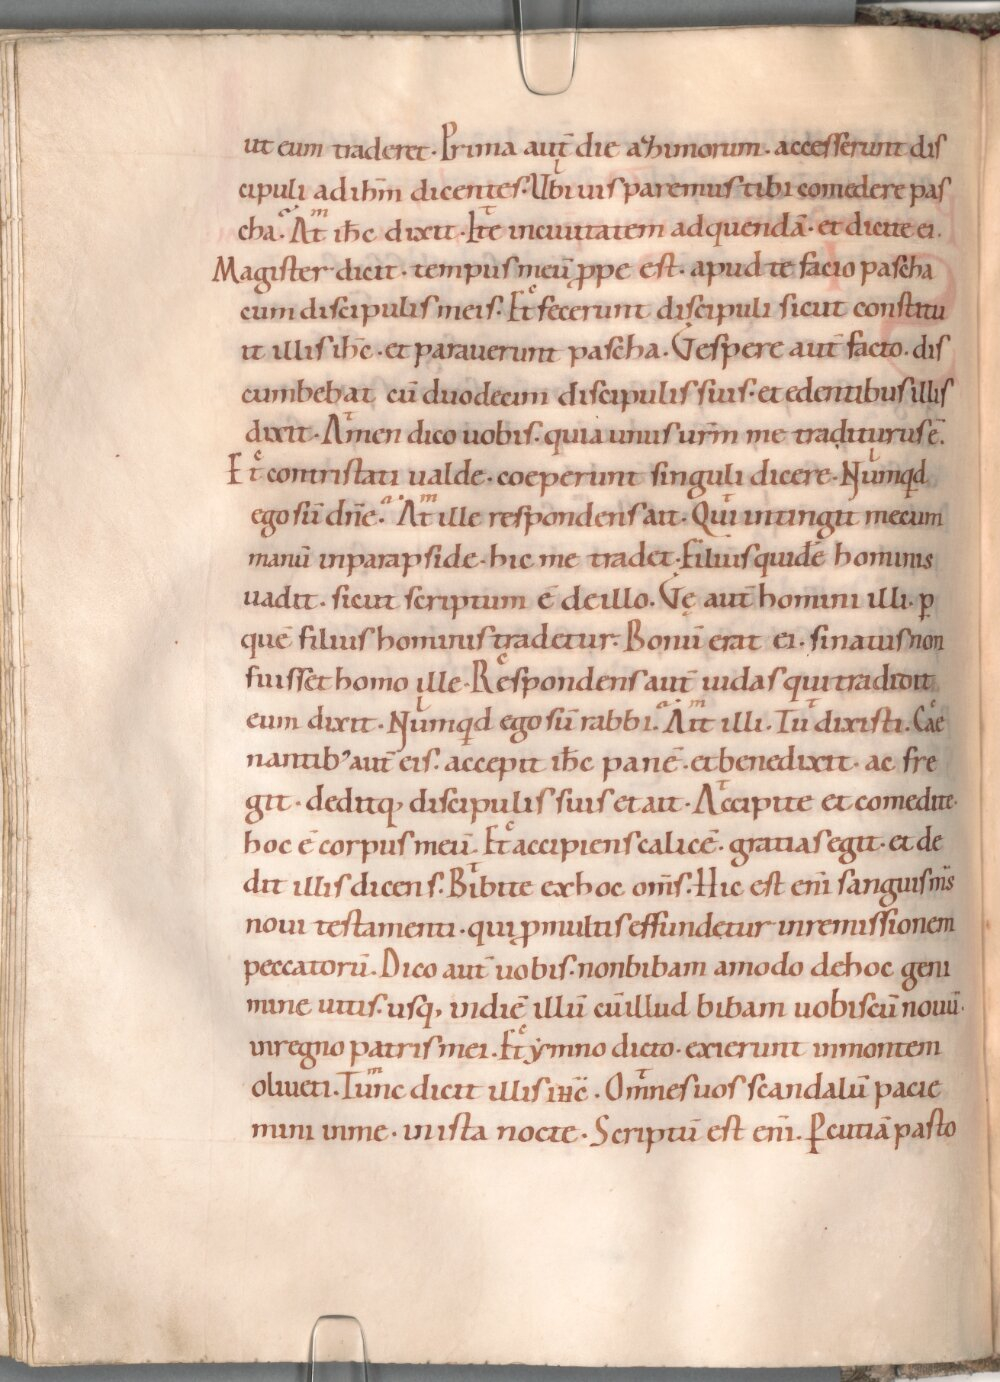 ut eum traderet. Prima aut̄ die azimorum. accesserunt dis
cipuli ad ihm̄ dicentes. Ubi uis paremus tibi comedere pas
cha. At ihc̄ dixit. Ite in ciuitatem ad quendā. et dicite ei.
Magister dicit. tempus meū ꝓpe est. apud te facio pascha
cum discipulis meis. Et fecerunt discipuli sicut constitu
it illis ihc̄. et parauerunt pascha. Vespere aut̄ facto. dis
cumbebat cū duodecim discipulis suis. et edentibus illis
dixit. Amen dico uobis. quia unus urm̄ me traditurus ē.
Et contristati ualde. coeperunt singuli dicere. Numqd
ego sū dn̄e. At ille respondens ait. Qui intingit mecum
manū in parapside. hic me tradet. Filius quidē hominis
uadit. sicut scriptum ē de illo. Vę aut̄ homini illi. ꝑ
quē filius hominis tradetur. Bonū erat ei. si natus non
fuisset homo ille. Respondens aut̄ iudas qui tradidit
eum dixit. Numqd ego sū rabbi. Ait illi. Tu dixisti. Cae
nantib’ aut̄ eis. accepit ihc̄ panē. et benedixit. ac fre
git. deditq, discipulis suis et ait. Accipite et comedite.
hoc ē corpus meū. Et accipiens calicē. gratias egit. et de
dit illis dicens. Bibite ex hoc om̄s. Hic est eni̅ sanguis ms̄
noui testamenti. qui ꝓ multis effundetur in remissionem
peccatorū. Dico aut̄ uobis. non bibam amodo de hoc geni
mine uitis. usq, in diē illū cū illud bibam uobiscū nouū.
in regno patris mei. Et ymno dicto. exierunt in montem
oliueti. Tunc dicit illis ihc̄. Omnes uos scandalū pacie
mini in me. in ista nocte. Scriptū est eni̅. Ꝑcutiā pasto